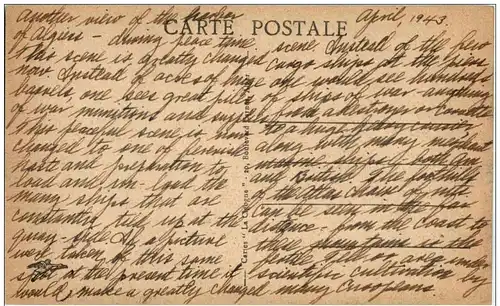 another view of the harbor
of Algiers - during peace time
this scene is greatly changed
now. Instead of acres of huge
barrels, one sees great piles
of war munitions and supplies
this peaceful scene is now
changed to one of
haste and preparation to
load and un-load the
many ships that are
constantly tied up at the
quay-side. If a picture
were taken of this same
spot at the present time it
would make a greatly changed
CARTE POSTALE
April, 1943.
scene. Instead of the few
cargo ships at the piers
one would see hundreds
of ships of war - anything
from a destroyer or corvette
to a huge
along with many merchant
ships of both Am
and British. The foothills
of the atlas chain of mts
can be seen in the far
distance - from the coast to
these mountains is the
area under
scientific cultivation by
many Europeans